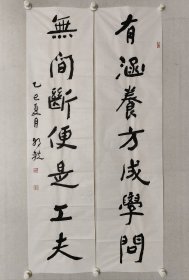 有涵養方成學問
無間斷便是工夫
乙巳夏月